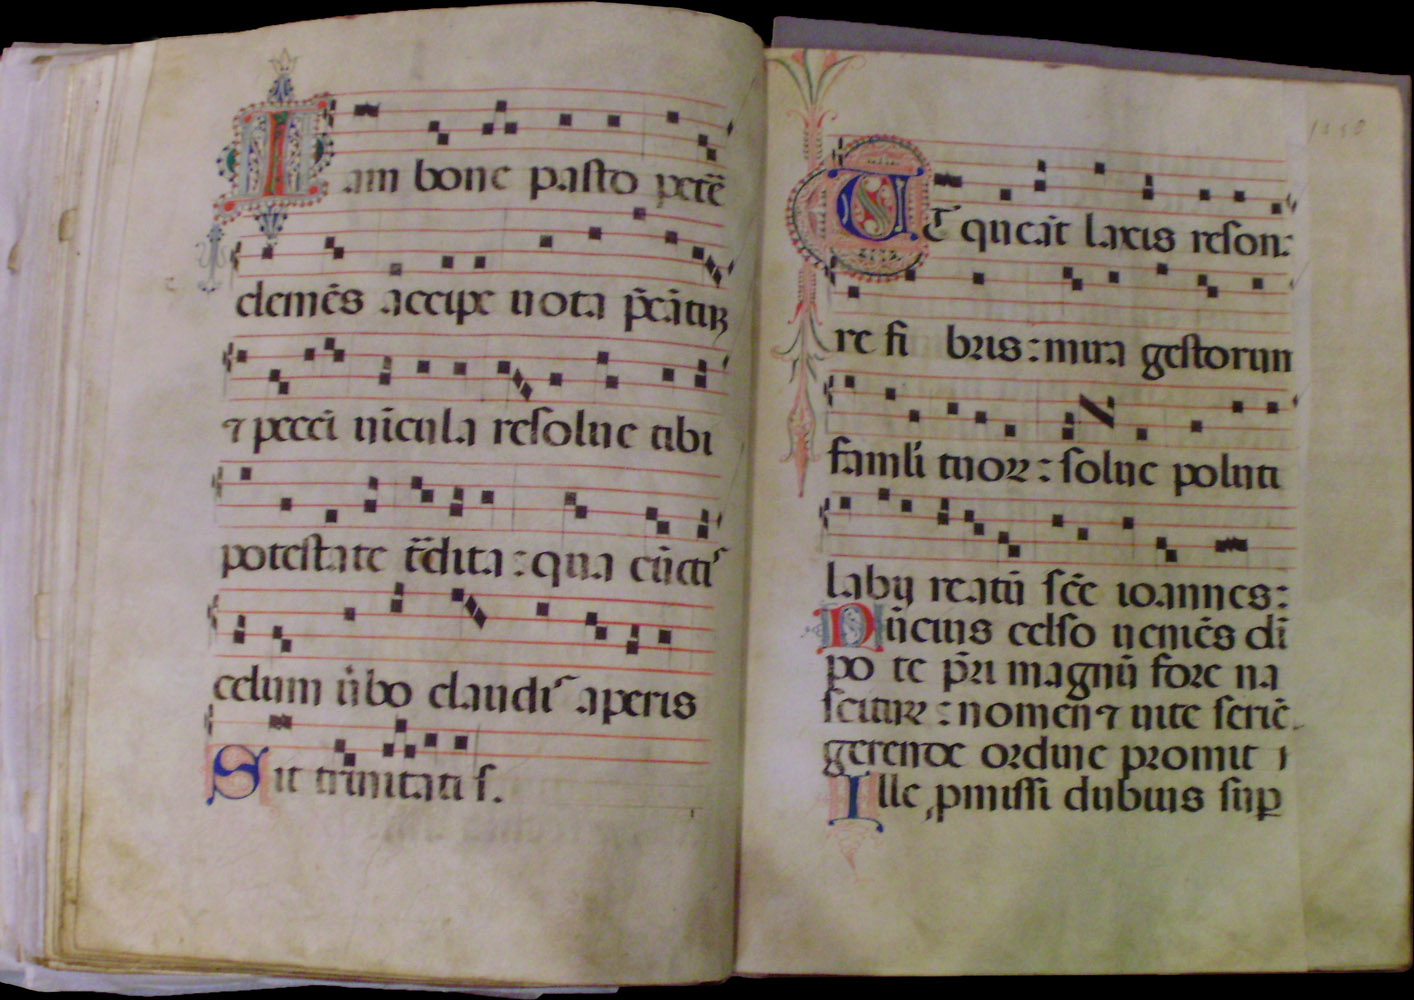 Iam bone pasto petē
clemēs accipe uota p̄cātiū
⁊ pecci uīcula resolue tibi
potestate t̄dita : qua cūctis
celum ūbo claudis aperis
Sit trinitati s.
UT queāt laxis reson:
re fi bris : mira gestorum
famuli tuoꝝ : solue poluti
labij reatū sc̄e ioannes :
Nūcius celso ueniēs oli
po te p̄ri magnū fore na
sciturꝝ : nomen ⁊ uite seriē
gerende ordine promit
Ille ꝓmissi dubius suꝑ